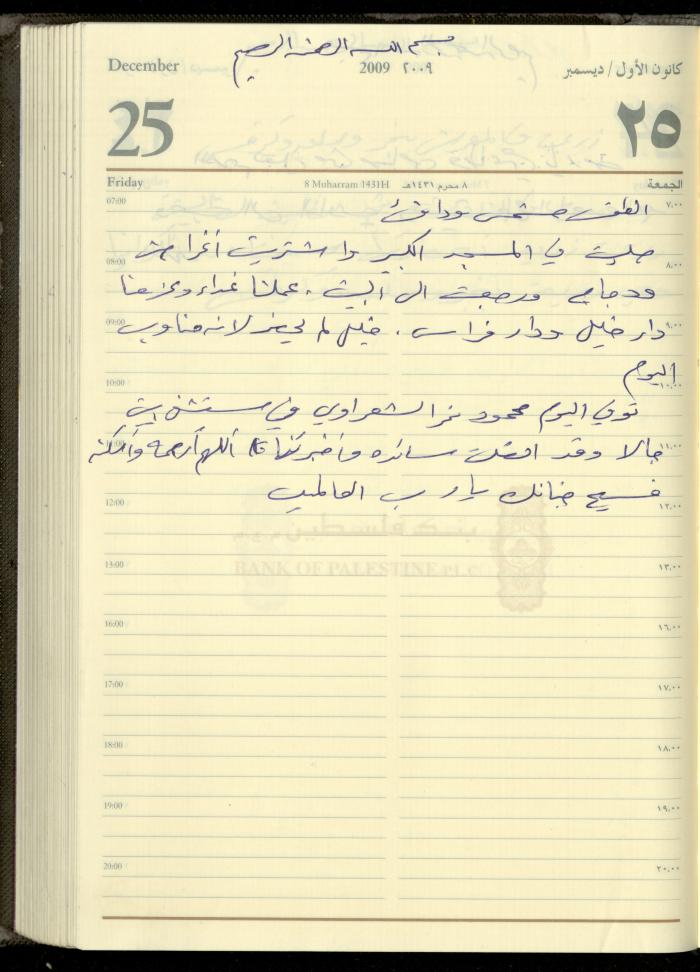 بسم الله الرحمن الرحيم
December
2009 ٢٠٠٩
كانون الأول / ديسمبر
25
٢٥
Friday
8 Muharram 1431H ٨ محرم ١٤٣١هـ
الجمعة
07:00 ٧,٠٠
الطقس مشمس ودافئ
صليت في المسجد الكبير واشتريت أغراض
08:00 ٨,٠٠
ودجاج ورجعت الى البيت . عملنا غداء وعزمنا
09:00 ٩,٠٠
دار خليل ودار فراس . خليل لم يحضر لانه مناوب
اليوم
10:00 ١٠,٠٠
توفي اليوم محمود نمر الشعراوي في مستشفى
١١,٠٠
وقد اتصلت سائده وأخبرتنا اللهم ارحمه وأسكنه
فسيح جنانك يا رب العالمين
12:00 ١٢,٠٠
بنك فلسطين
BANK OF PALESTINE
13:00 ١٣,٠٠
16:00 ١٦,٠٠
17:00 ١٧,٠٠
18:00 ١٨,٠٠
19:00 ١٩,٠٠
20:00 ٢٠,٠٠